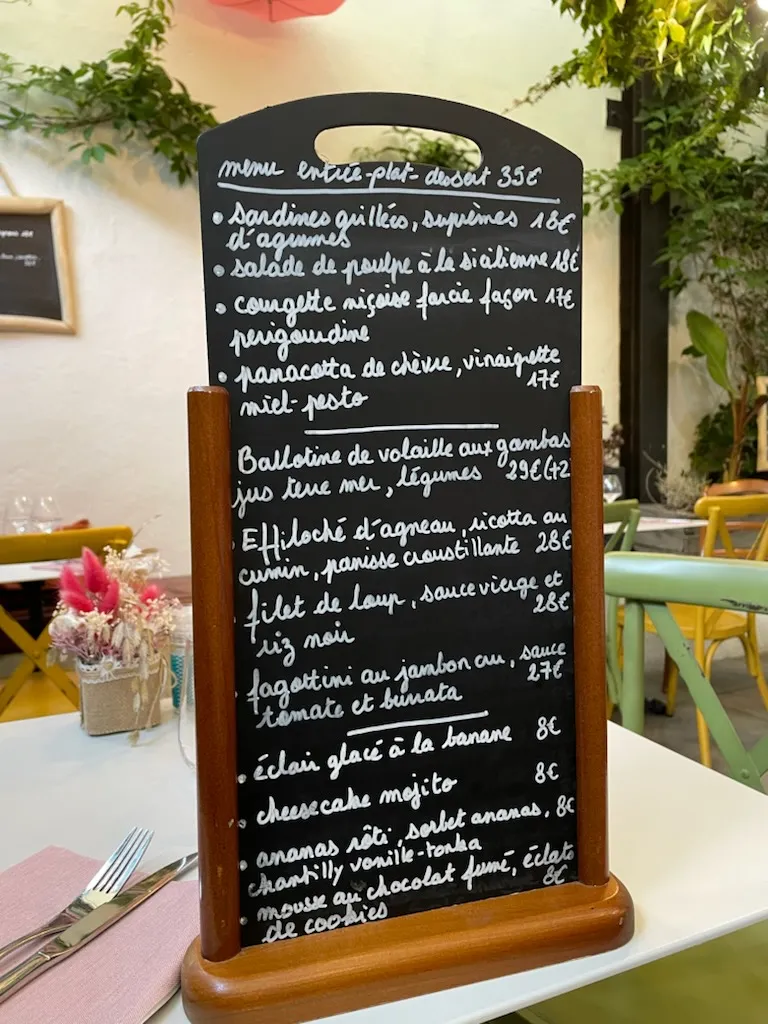 menu entrée-plat-dessert 35€
• sardines grillées, suprêmes 18€
d'agrumes
• salade de poulpe à la sicilienne 18€
• courgette niçoise farcie façon 17€
perigourdine
• panacotta de chèvre, vinaigrette
miel-pesto 17€
Ballotine de volaille aux gambas
jus terre mer, légumes 29€ (+2
• Effiloché d'agneau, ricotta au
cumin, panisse croustillante 28€
• filet de loup, sauce vierge et
riz noir 28€
• fagottini au jambon cru, sauce
tomate et burrata 27€
• éclair glacé à la banane 8€
• cheesecake mojito 8€
• ananas rôti, sorbet ananas, 8€
chantilly vanille-tonka
• mousse au chocolat fumé, éclats
de cookies 8€